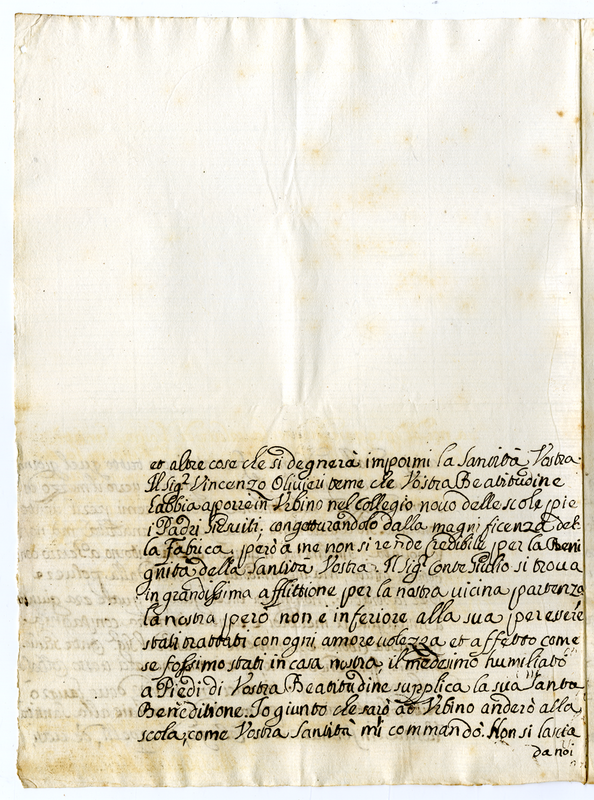 et altre cose che si degnerà impormi la Santità Vostra
Il Sig.r Vincenzo Oliuieri teme che Vostra Beatitudine
habbia a porre in Vrbino nel Collegio nouo delle scole pie
i Padri Giesuiti, congetturandolo dalla magnificenza del
la fabrica, però a me non si rende credibile per la Beni
gnità della Santità Vostra. Il Sig.r Conte Giulio si troua
in grandissima afflittione per la nostra vicina partenza
la nostra però non è inferiore alla sua per essere
stati trattati con ogni amoreuolezza et affetto come
se fossimo stati in casa nostra, il medesimo humiliato
a Piedi di Vostra Beatitudine supplica la sua Santa
Beneditione. Io giunto che sarò ad Vrbino anderò alla
scola, come Vostra Santità mi commandò. Non si lascia
da noi